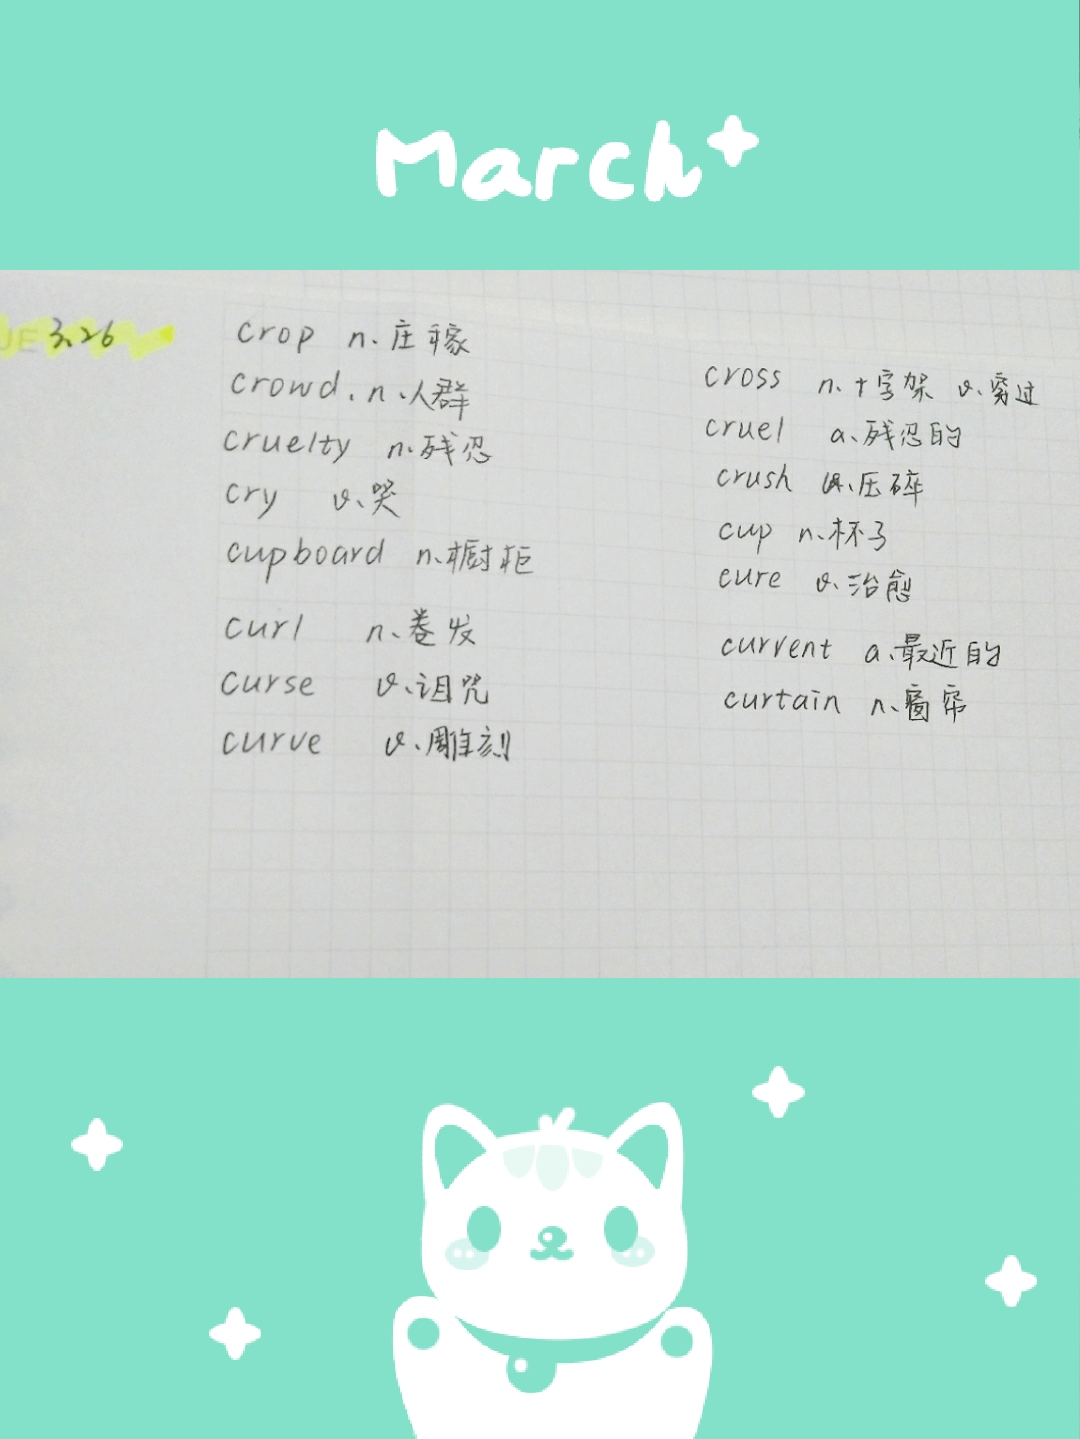 March
3.26
crop n.庄稼
cross n.十字架 v.穿过
crowd. n.人群
cruel a.残忍的
cruelty n.残忍
crush v.压碎
cry v.哭
cup n.杯子
cupboard n.橱柜
cure v.治愈
curl n.卷发
current a.最近的
curse v.诅咒
curtain n.窗帘
curve v.雕刻